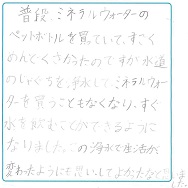 普段、ミネラルウォーターの
ペットボトルを買っていて、すごく
めんどくさかったのですが水道
のじゃぐちを浄水して、ミネラルウォー
ターを買うこともなくなり、すぐ
水を飲むことができるように
なりました。この浄水で生活が
変わったように思いしてよかったなぐらい
ました。